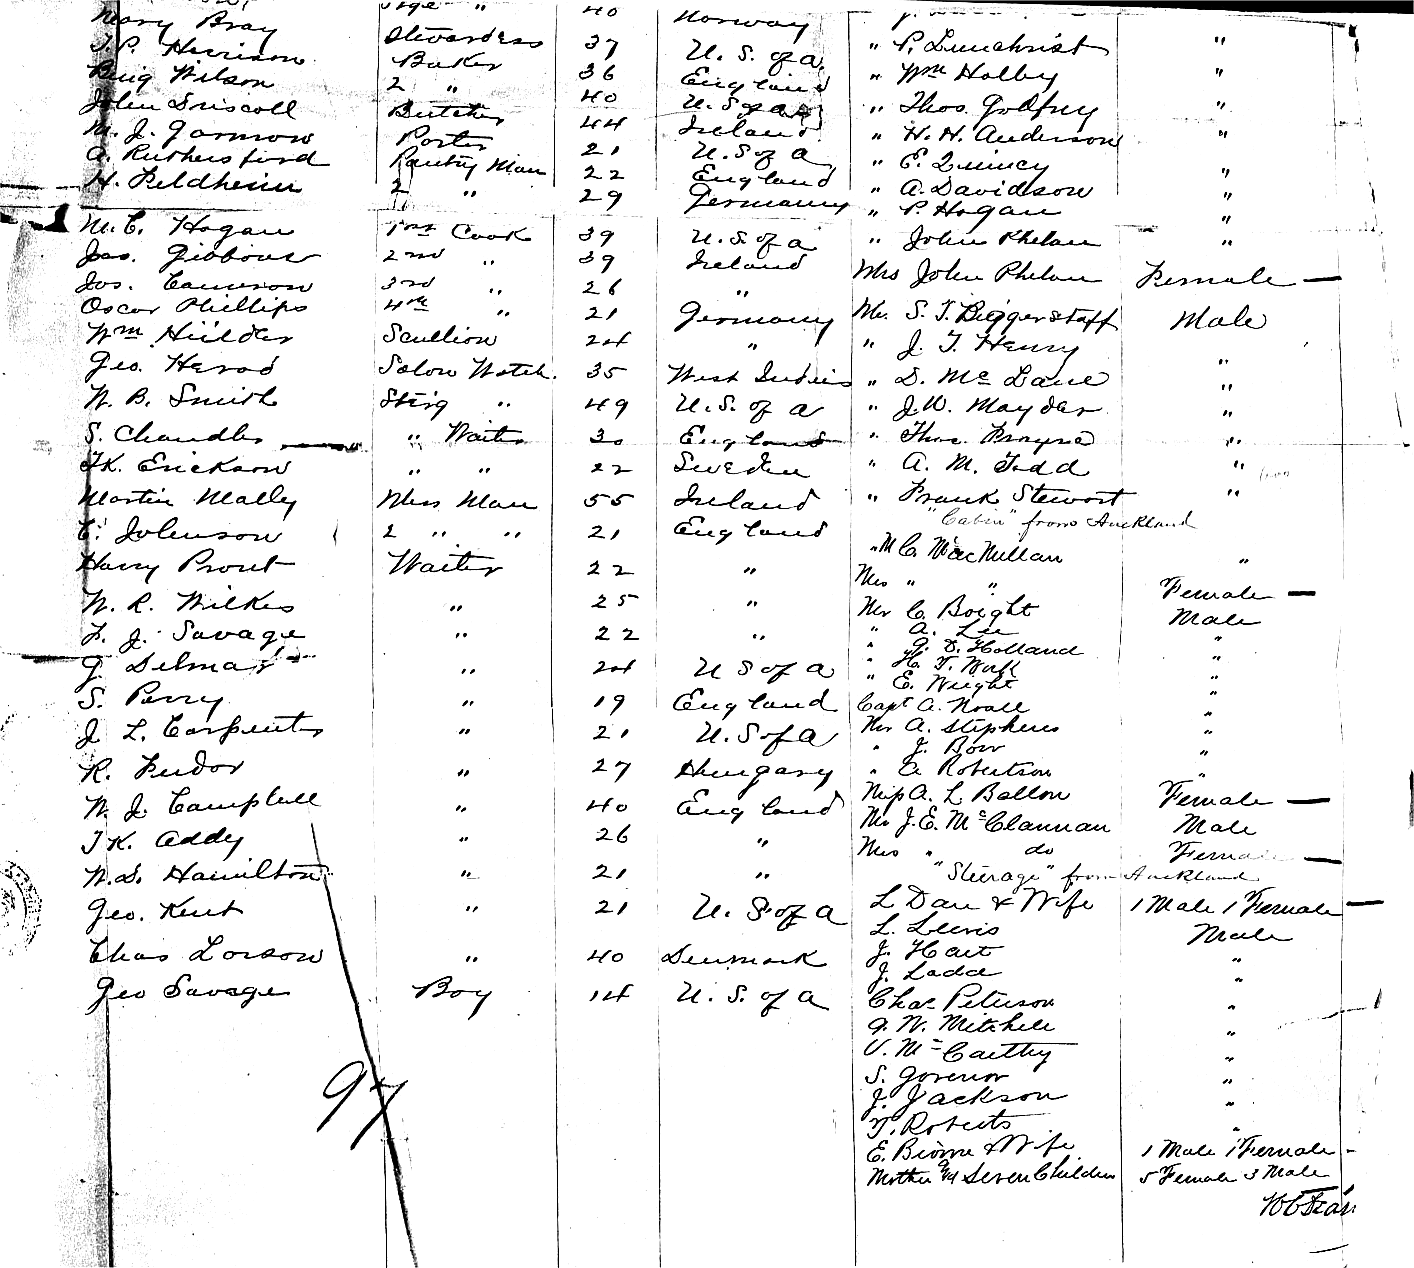 Mary Bray Stewardess 37 Norway
T. P. Harrison Baker 36 U. S. of a " P. Lunchrist "
Benj Wilson 2 " 40 England " Wm Holby "
John Driscoll Butcher 44 U. S of a " Thos. Godfrey "
M. J. Gormow Porter 21 Ireland " H. H. Anderson "
A. Rutherford Pantry Man 22 U. S of a " E. Quincy "
H. Feldheim 2 " 29 England " A. Davidson "
Germany " P. Hogan "
M. C. Hogan 1st Cook 39 U. S. of a " John Phelan "
Jas. Gibbons 2nd " 39 Ireland Mrs John Phelan Female —
Jos. Cameron 3rd " 26 "
Oscar Phillips 4th " 21 Germany Mr. S. T. Biggerstaff Male
Wm Hülder Scullion 24 " " J. T. Henry "
Geo. Herod Salon Watch. 35 West Indies " D. Mc Lane "
W. B. Smith Sterg " 49 U. S. of a " J. W. Mayder "
S. Chandler " Waiter 30 England " Thos. "
TK. Erickson " " 22 Sweden " A. M. Todd "
Martin Mally Mess Man 55 Ireland " Frank Stewart "
"Cabin" from Auckland
C. Johnson 2 " " 21 England " M C. MacMillan "
Harry Prout Waiter 22 " Mrs " " Female —
W. R. Wilkes " 25 " Mr C. Boight Male
" A. Lee "
F. J. Savage " 22 " " G. D. Holland "
G Delmar " 24 U S of a " H. T. Wolf "
" E. Wright "
S. Perry " 19 England Capt A. Noall "
J L. Carpenter " 21 U. S of a Mr A. Stephens "
" J. Bow "
R. Fudor " 27 Hungary " A Robertson "
W. J. Campbell " 40 England Miss A. L Ballow Female —
Mr J. E. Mc Clannan Male
TK. Addy " 26 " Mrs " do Female —
W. S. Hamilton " 21 " "Steerage" from Auckland
Geo. Kent " 21 U. S. of a L Dan & Wife 1 Male 1 Female —
L. Lewis Male
Chas Lorson " 40 Denmark J. Hart "
J. Ladd "
Geo Savage Boy 14 U. S. of a Chas Peterson "
G. W. Mitchell "
V. Mc Carthy "
S. Govenor "
97 J. Jackson "
T. Roberts "
E. Biorne & Wife 1 Male 1 Female -
Mother and Seven Children 5 Female 3 Male